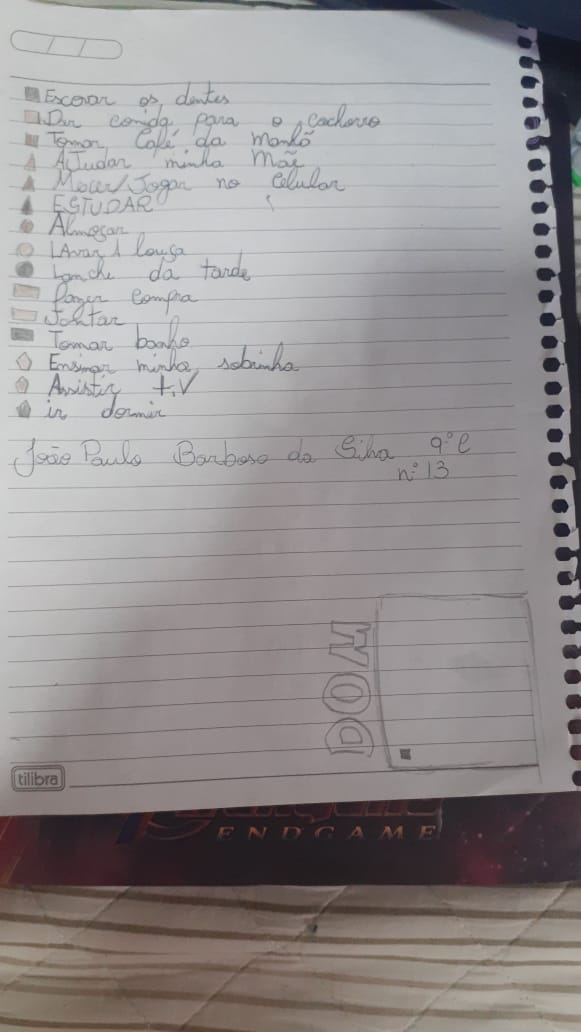 Escovar os dentes
Dar comida para o cachorro
Tomar Café da manhã
AJudar minha Mãe
Mecer/Jogar no celular
ESTUDAR
Almoçar
LAvar A louça
Lanche da tarde
Fazer compra
Jantar
Tomar banho
Ensinar minha sobrinha
Assistir t.V
ir dormir
João Paulo Barbosa da Silva 9°C
n° 13
tilibra
ENDGAME